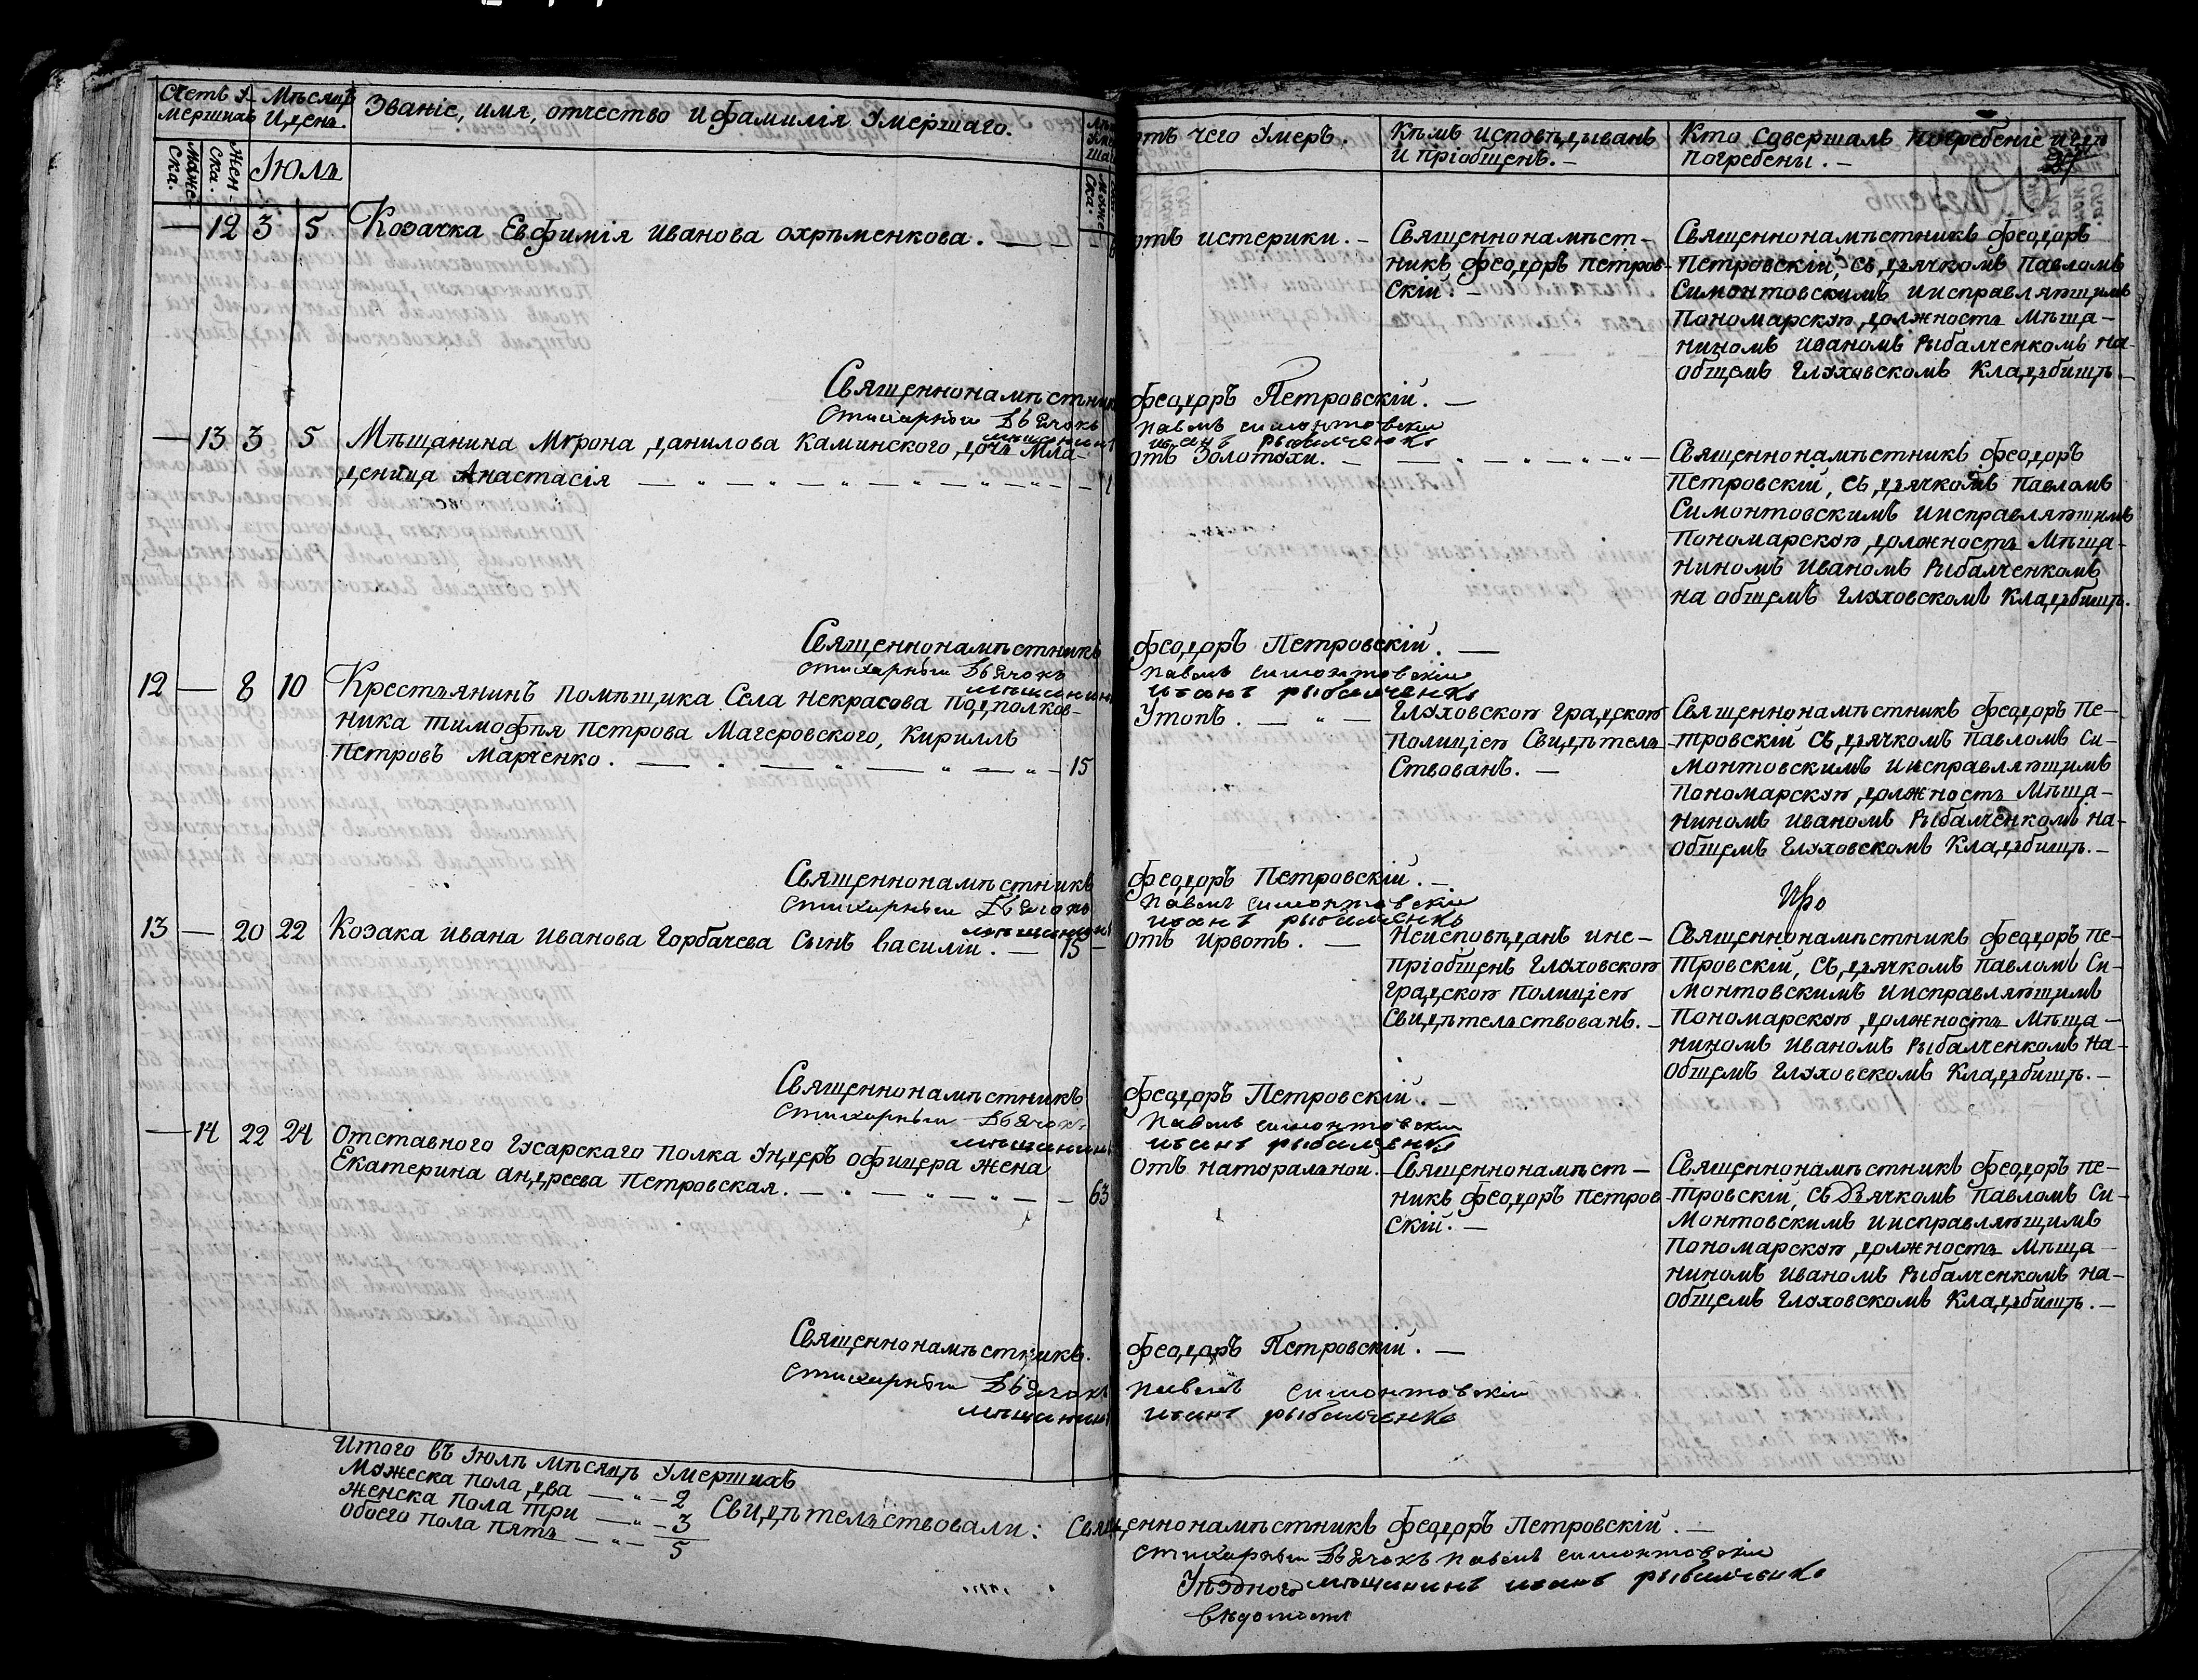 Счетъ У-
мершихъ
Мѣсяцъ
И день.
Званіе, имя, отчество и фамилія Умершаго.
Лѣта
Муже-
Ска.
Жен-
Ска.
Іюль
Муже-
Ска.
отъ чего Умеръ.
Кѣмъ исповѣдыванъ
и пріобщенъ. —
Кто Совершалъ погребеніе и гдѣ
погребены. —
— 12 3 5 Козачка Евфимія Иванова Охрѣменкова. — —
отъ истерики. —
Священнонамѣст-
никъ Феодоръ Петров-
Скій. —
Священнонамѣстникъ Феодоръ
Петровскій, Съ дьячкомъ Павломъ
Симонтовскимъ Иисправляющимъ
Пономарскую должность Мѣща-
ниномъ Иваномъ Рыбалченкомъ на-
общемъ Глуховскомъ Кладбищѣ. —
Священнонамѣстникъ Феодоръ Петровскій. —
Стихарный Дьячокъ Павелъ Симонтовскій
мѣщанинъ Иванъ Рыбалченко
— 13 3 5 Мѣщанина Мирона Данилова Каминского дочь Мла-
деница Анастасія — „ — „ — „ — „ — „ — 1
отъ Золотухи. —
— „ — „ — „ —
Священнонамѣстникъ Феодоръ
Петровскій, Съ дьячкомъ Павломъ
Симонтовскимъ Иисправляющимъ
Пономарскую должность Мѣща-
ниномъ Иваномъ Рыбалченкомъ
на общемъ Глуховскомъ Кладбищѣ.
Священнонамѣстникъ Феодоръ Петровскій. —
Стихарный Дьячокъ Павелъ Симонтовскій
мѣщанинъ Иванъ Рыбалченко
12 — 8 10 Крестьянинъ помѣщика Села Некрасова Подполков-
ника Тимофѣя Петрова Магеровского, Кириллъ
Петровъ Марченко. — „ — „ — „ — „ — 15
Утопъ. — „ —
Глуховскою Градскою
Полиціею Свидѣтель-
Ствованъ. —
Священнонамѣстникъ Феодоръ Пе-
тровскій Съ дьячкомъ Павломъ Си-
монтовскимъ Иисправляющимъ
Пономарскую должность Мѣща-
ниномъ Иваномъ Рыбалченкомъ на-
общемъ Глуховскомъ Кладбищѣ. —
Священнонамѣстникъ Феодоръ Петровскій. —
Стихарный Дьячокъ Павелъ Симонтовскій
мѣщанинъ Иванъ Рыбалченко
13 — 20 22 Козака Ивана Иванова Горбачева Сынъ Василій. — 15 —
отъ Ирвотъ. —
Неисповѣданъ ине-
пріобщенъ Глуховскою
Градскою Полиціею
Свидѣтельствованъ. —
Священнонамѣстникъ Феодоръ Пе-
тровскій, Съ дьячкомъ Павломъ Си-
монтовскимъ Иисправляющимъ
Пономарскую должность Мѣща-
ниномъ Иваномъ Рыбалченкомъ На-
Общемъ Глуховскомъ Кладбищѣ. —
Священнонамѣстникъ Феодоръ Петровскій. —
Стихарный Дьячокъ Павелъ Симонтовскій
мѣщанинъ Иванъ Рыбалченко
— 14 22 24 Отставного Гусарскаго полка Ундеръ Офицера жена
Екатерина Андреева Петровская. — „ — „ — „ — — 63
отъ натуральной. —
Священнонамѣст-
никъ Феодоръ Петров-
Скій. —
Священнонамѣстникъ Феодоръ Пе-
тровскій, Съ Дьячкомъ Павломъ Си-
монтовскимъ Иисправляющимъ
Пономарскую должность Мѣща-
ниномъ Иваномъ Рыбалченкомъ на-
общемъ Глуховскомъ Кладбищѣ. —
Священнонамѣстникъ. Феодоръ Петровскій. —
Стихарный Дьячокъ Павелъ Симонтовскій
мѣщанинъ Иванъ Рыбалченко
Итого въ Іюлѣ мѣсяцѣ Умершихъ
Мужеска пола два — „ — 2
Женска пола три — „ — 3
Обоего пола пять — „ — 5
Свидѣтельствовали: Священнонамѣстникъ Феодоръ Петровскій. —
Стихарный Дьячокъ Павелъ Симонтовскій
мѣщанинъ Иванъ Рыбалченко